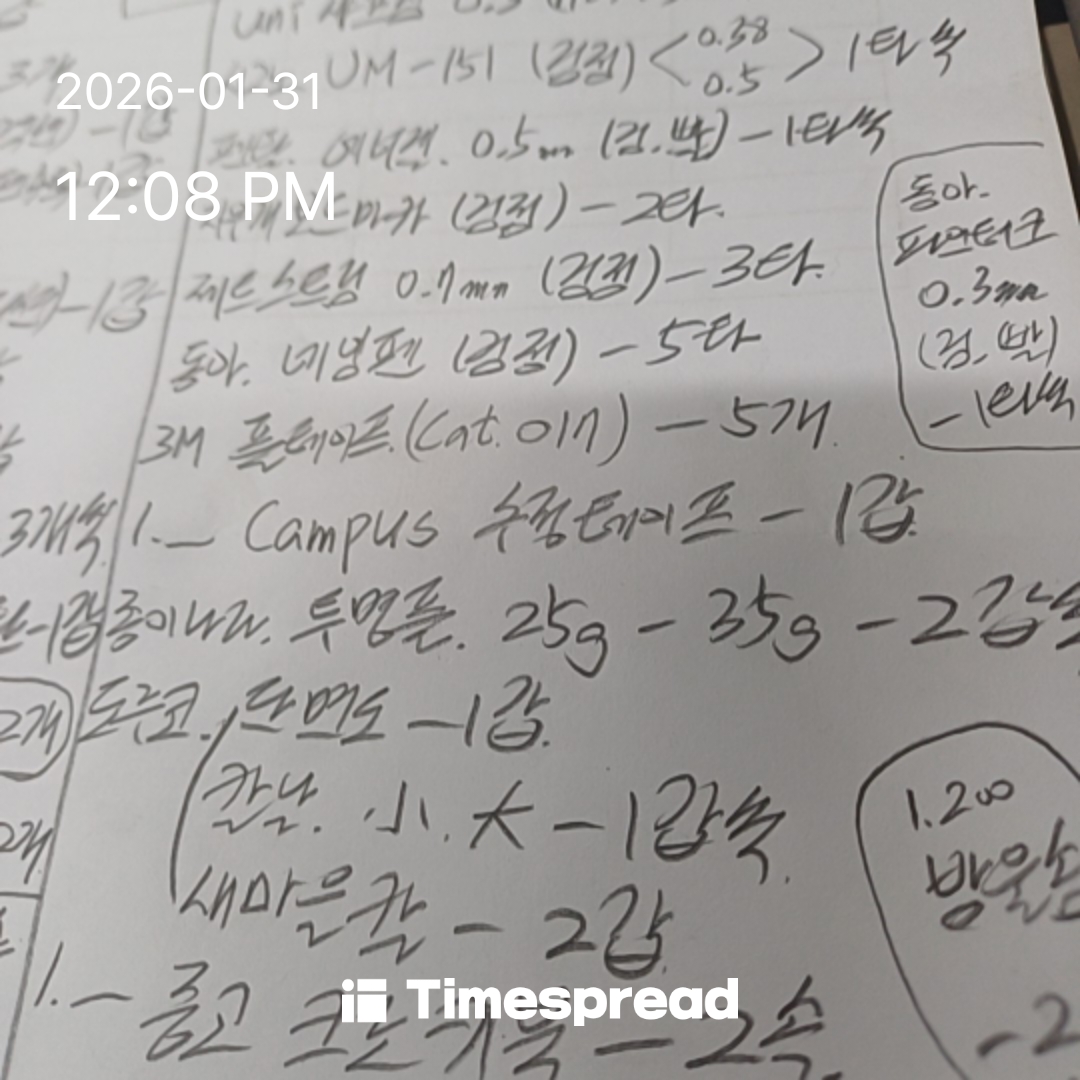 2026-01-31
12:08 PM
uni 샤프심 0.5
UM-151 (검정) < 0.38 0.5 > 1타씩
펜탈. 에너겔. 0.5mm (검.빨) - 1타씩
마카 (검정) - 2타.
제트스트림 0.7mm (검정) - 3타.
동아. 네임펜 (검정) - 5타
3M 플테이프.(Cat. 017) - 5개.
1.- Campus 수정테이프 - 1갑.
종이나라. 투명풀. 25g - 35g - 2갑씩
도루코. 단면도 - 1갑.
칼날. 小. 大 - 1갑씩.
새마을칼 - 2갑
1.- 중고 - 2속.
동아.
파인테크
0.3mm
(검.빨)
- 1타씩
1.200
방울
- 2
- 1갑
- 1갑
3개씩
- 1갑
2개